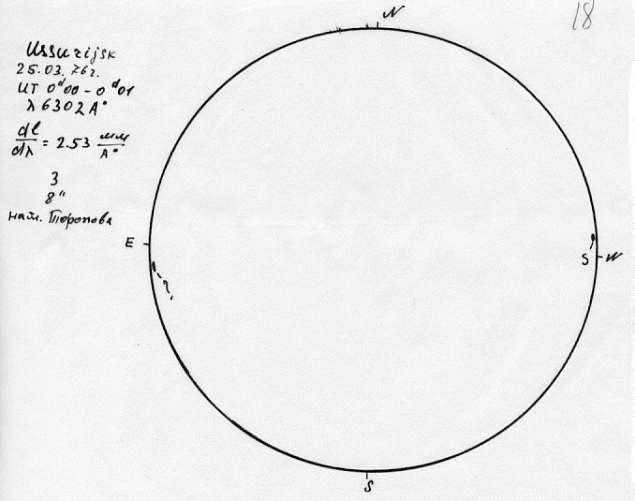 18
N
Ussurijsk
25.03.76г.
UT 0ᵈ00 - 0ᵈ01
λ 6302 A°
dl/dλ = 2.53 мм/A°
3
8"
набл. Торопова
E
S
W
S